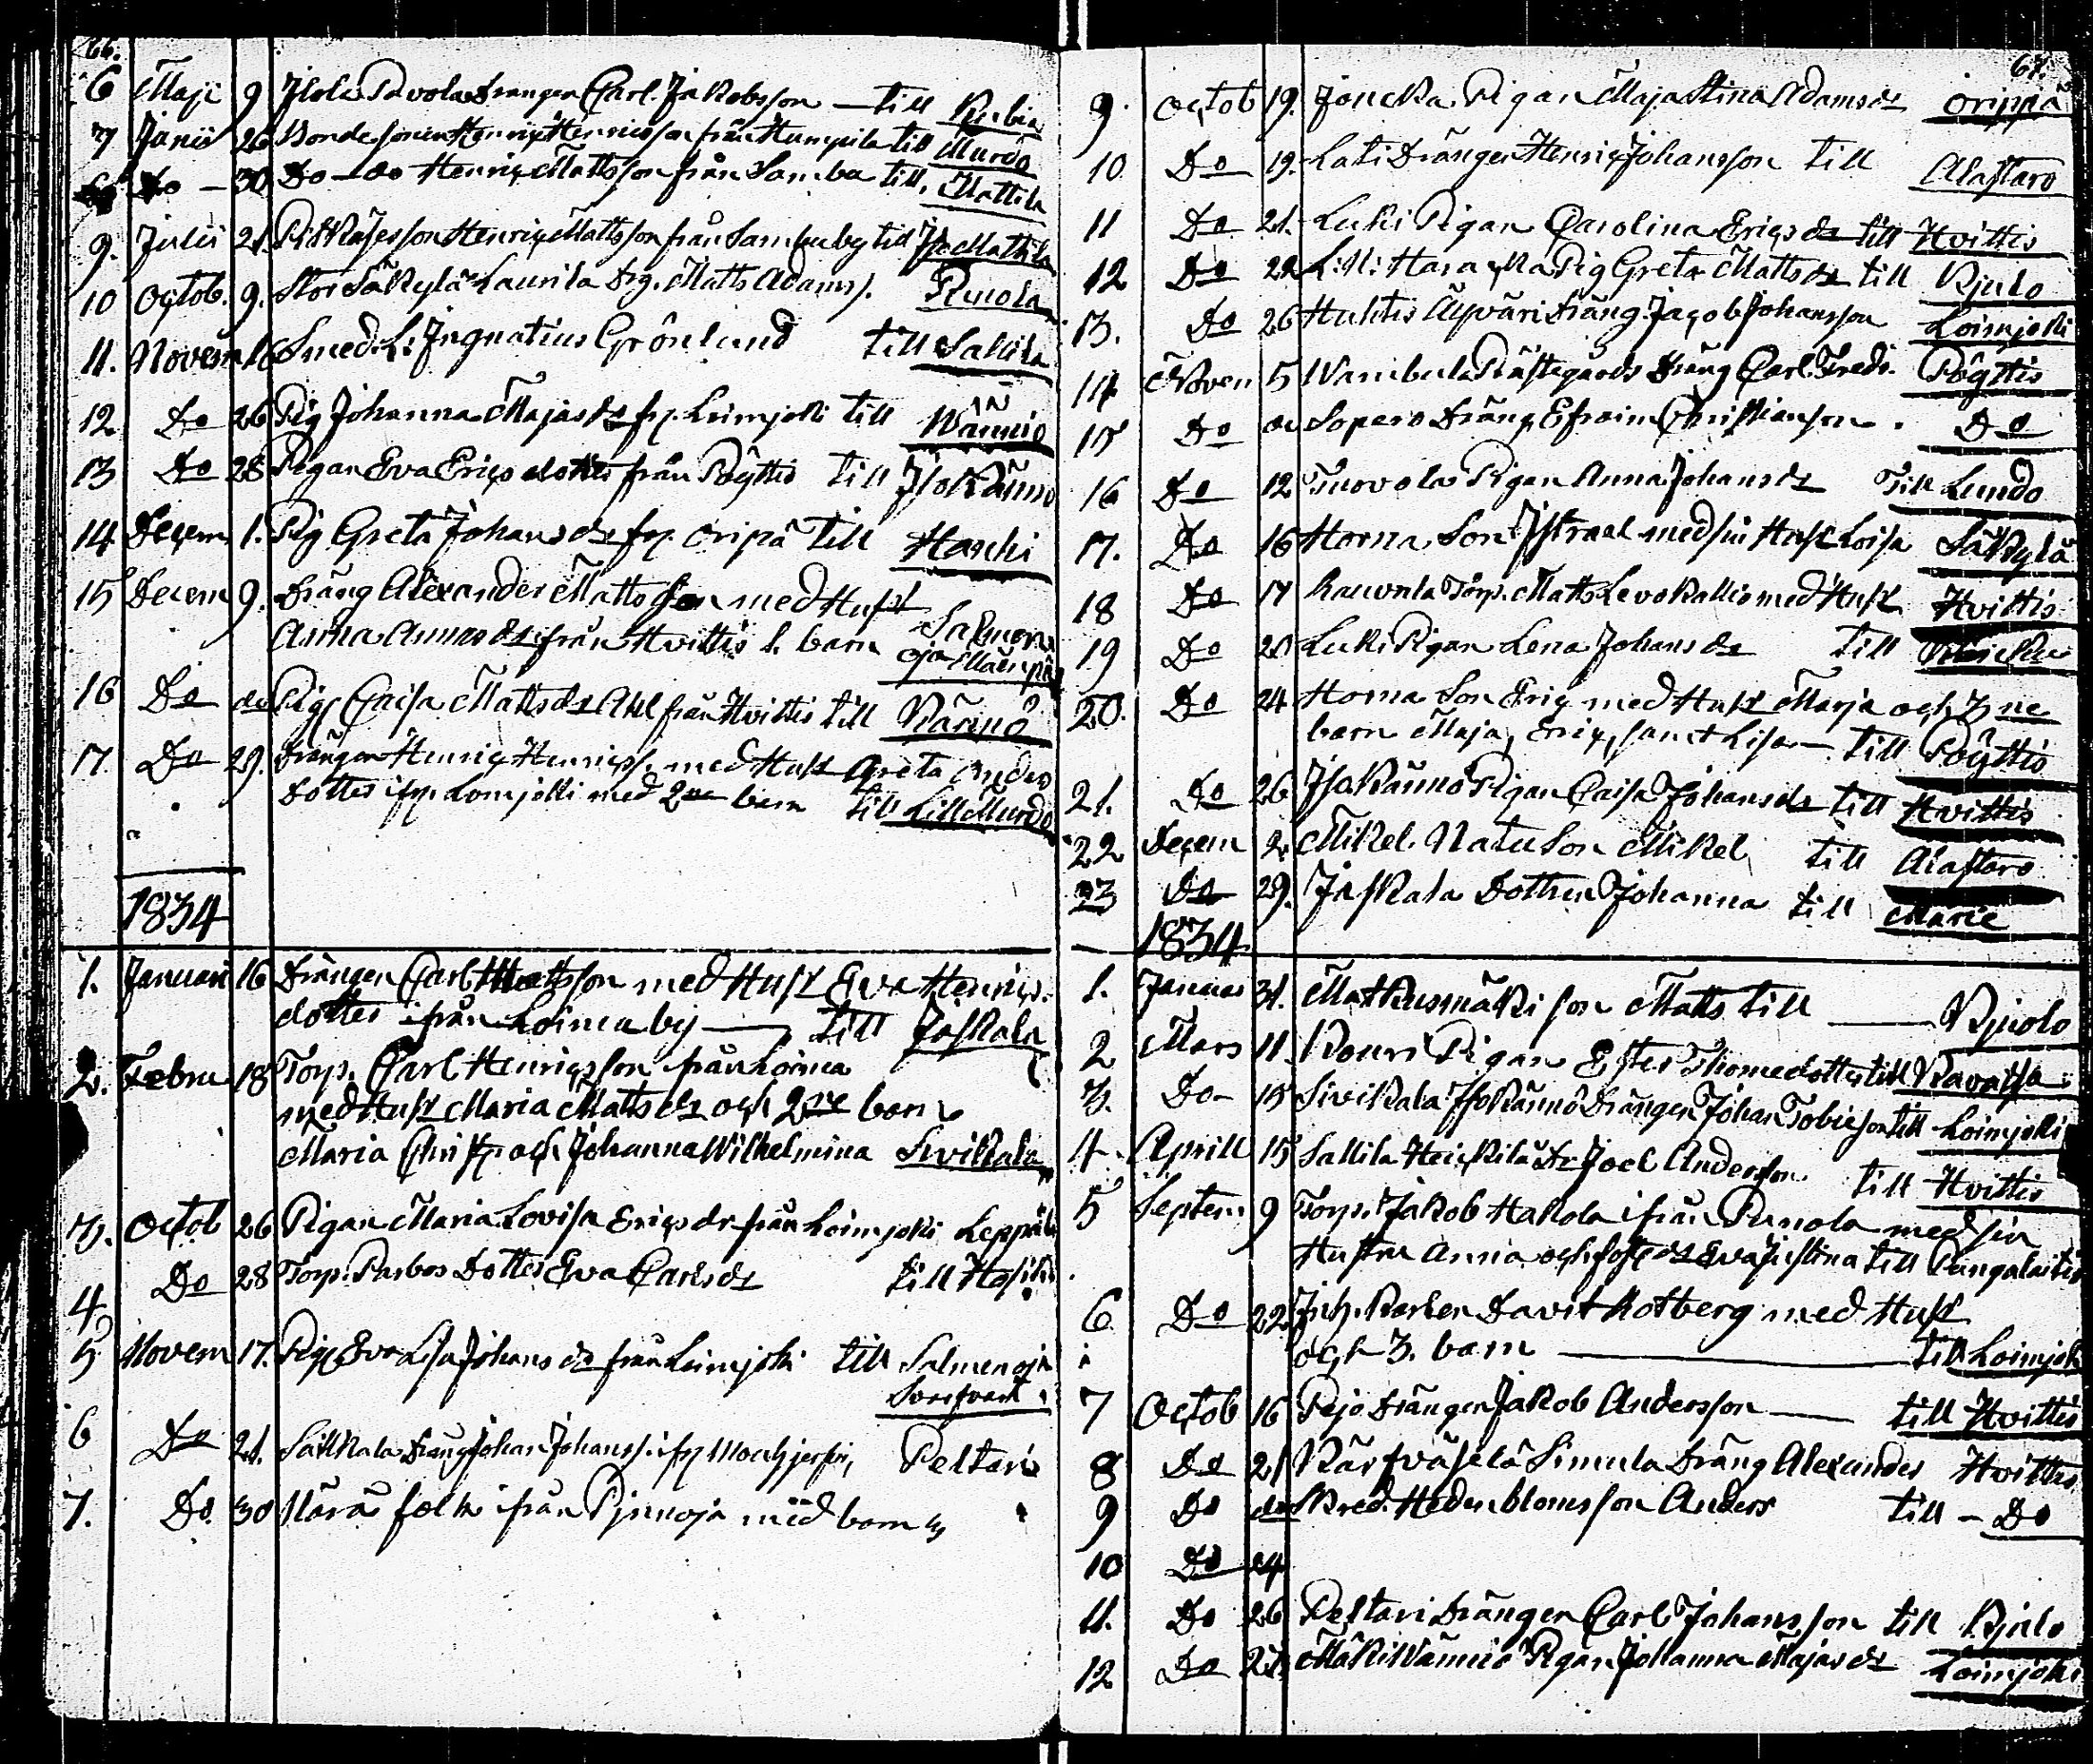 66.
6 Maji 9 Isola Pavola Drängen Carl Jakobsson — till Kubia
7 Junii 26 Bonde sonen Henriç Henricsson från Humpila till Murdo
Do — 30 Do — do Henriç Mattsson från Samba till Mattila
9. Julii 21. Henriç Mattsson från Sambu by till Mattila
10 Octob. 9. Stor Säkylä Laurila Drg. Matts Adams s. Ruola
11. Novem 16 Smed. L. Ingnatius Grönlund till Sallila
12 Do 26 Pig Johanna Majas dr fr. Loimjoki till Wännio
13 Do 28 Pigan Eva Eriçs dotter från Pöyttis till Iso Kännö
14 Decem 1. Pig Greta Johans dr fr. Oripä till Hauki
15 Decem 9. Dräng Alexander Mattsson med Hust
Anna Annas dr ifrån Hvittis 1. barn Salmen oja
16 Do do Pig. Caisa Matts dr från Hvittis till Kännö
17 Do 29. Drängen Henriç Henriçss. med Hust Greta Anders
dotter ifr. Lomjokki med 2ne barn till Lill Murdo
1834
1. Januari 16 Drängen Carl Mattsson med Hust Eva Henriçs
dotter ifrån Loima by — till Jaskala
2. Febru 18 Torp. Carl Henriçsson från Loima
med Hust Maria Matts dr och 2ne barn
Maria Christ. och Johanna Wilhelmina Sivikala
3. Octob 26 Pigan Maria Lovisa Eriçs dr från Loimjoki Leppälä
4 Do 28 Torp. Parbos Dotter Eva Carls dr till
5 Novem 17. Pig Eva Lisa Johans dr från Loimjoki till Salmenoja
6 Do 21. Säkkala Dräng Johan Johanss. ifr. Peltari
7. Do. 30 folk ifrån med barn
67.
9. Octob 19. Joncka Pigan Maja Stina Adams dr Orippä
10 Do 19. Lati Drängen Henriç Johansson till Alastaro
11 Do 21. Luki Pigan Carolina Eriçs dr till Hvittis
12 Do 22 Pig Greta Matts dr till Kjulo
13. Do 26 Huhtis Äyväri Dräng Jacob Johansson Loimjoki
14 Noven 5 Wambula Prästegårds Dräng Carl Fredr. Pöyttis
15 Do do Sopero Dräng Efraim Christianson. Do
16 Do 12 Tuovola Pigan Anna Johans dr Till Lundo
17. Do 16 Horna Son Istrael med sin Hust Loisa Säkylä
18 Do 17 Rauvula Torp. Matts Levokallio med Hust Hvittis
19 Do 21 Luki Pigan Lena Johans dr till
20. Do 24 Horna Son Eriç med Hust Marja och 3ne
barn Maja, Eriç, samt Lisa — till Pöyttis
21. Do 26 Iso Kännö Pigan Caisa Johans dr till Hvittis
22 Decem 2. Mikel Natu Son Mikel till Alastaro
23 Do 29. Jaskala Dottren Johanna till Marie
1834
1. Januar 31. Matkusmäki son Matts till — Kjulo
2 Mars 11. Kouri Pigan Ester Thomedotter till Ravattsa
3. Do 15 Sivikala Iso Kännö Drängen Johan Tobieson till Loimjoki
4. Aprill 15 Sallila Heickilä Dr Joel Andersson. till Hvittis
5 Septem 9 Torp. Jakob Hakola ifrån Punola med sin
Hustru Anna och fost. dr Eva Justina till Pungalaitio
6 Do 22. Davit Kotberg med Hust
och 3. barn — till Loimjoki
7 Octob 16 Pejo Drängen Jakob Andersson — till Hvittis
8 Do 21 Kärfväselä Simula Dräng Alexander Hvittis
9 Do do Skred. Hedenbloms son Anders till — Do
10 Do 24
11. Do 26 Peltari Drängen Carl Johansson till Kjulo
12 Do 27. Mäki Wännio Pigan Johanna Majas dr Loimjoki